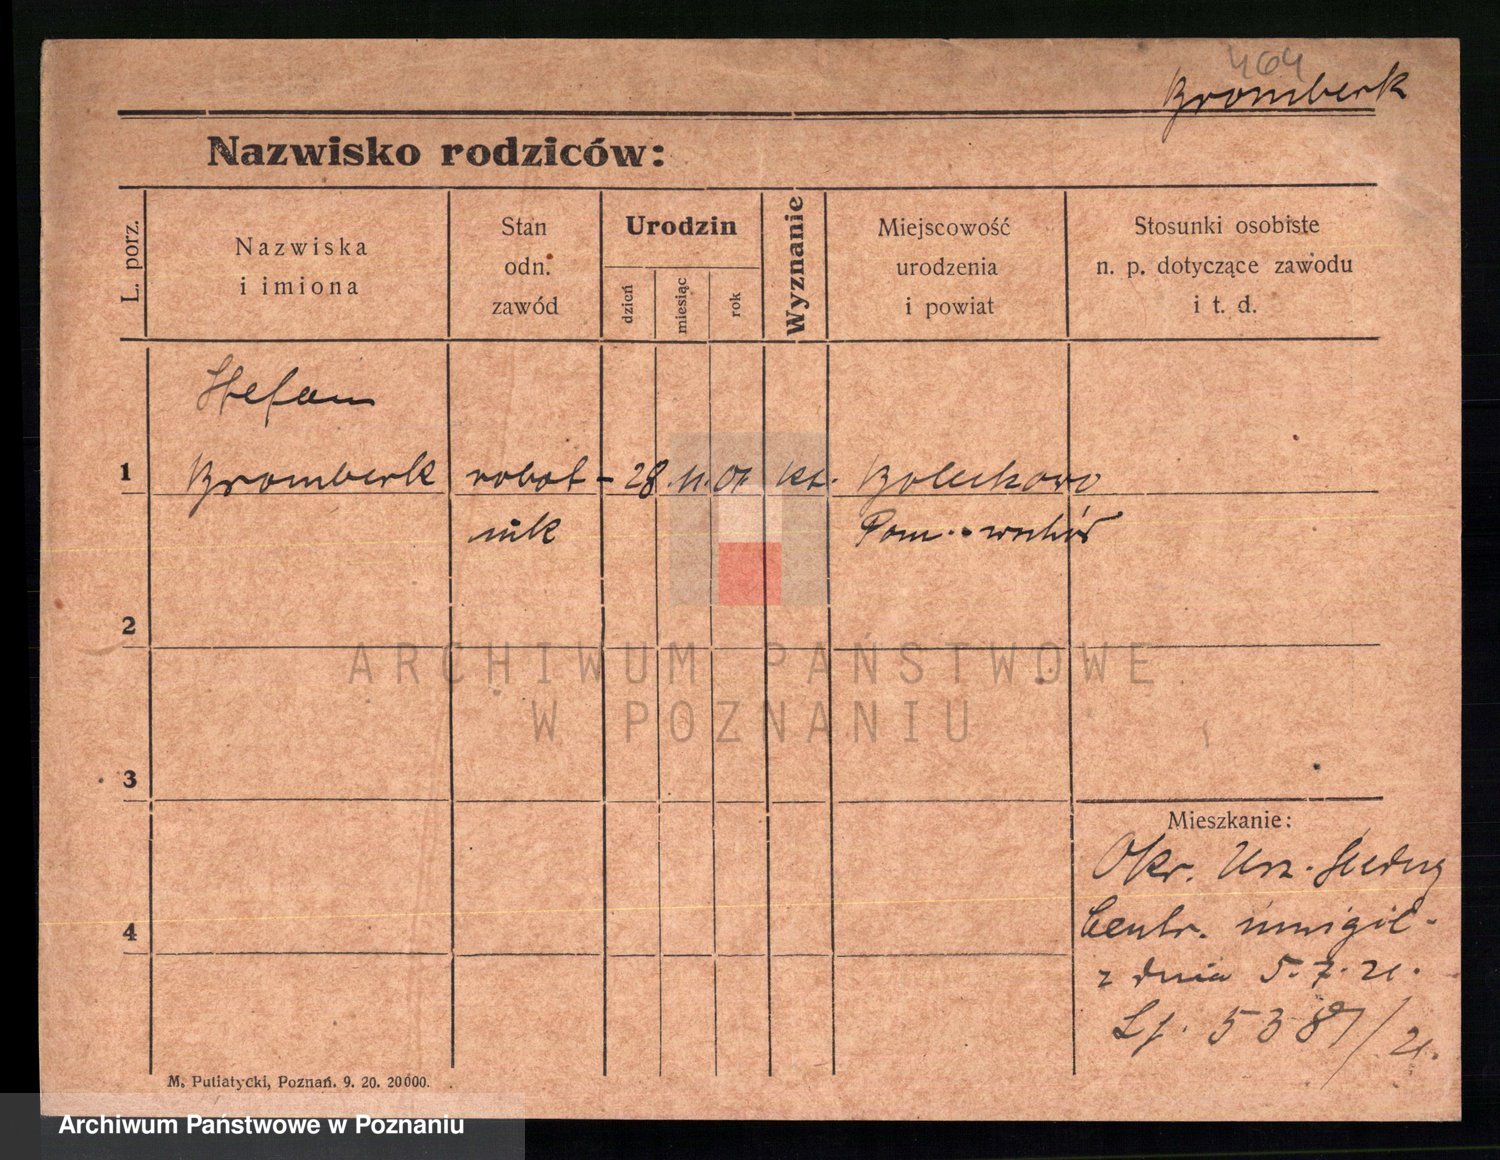 464
Bromberk
Nazwisko rodziców:
L. porz.
Nazwiska
i imiona
Stan
odn.
zawód
Urodzin
dzień
miesiąc
rok
Wyznanie
Miejscowość
urodzenia
i powiat
Stosunki osobiste
n. p. dotyczące zawodu
i t. d.
Stefan
1 Bromberk robot- 28. 11. 01 kt. Bolechowo
nik Pozn. - wschód
2
ARCHIWUM PAŃSTWOWE
W POZNANIU
3
Mieszkanie:
Okr. Urz. Śledczy
4
Centr. inwigil-
z dnia 5. 7. 21.
Lj. 5387/21.
M. Putiatycki, Poznań. 9. 20. 20000.
Archiwum Państwowe w Poznaniu